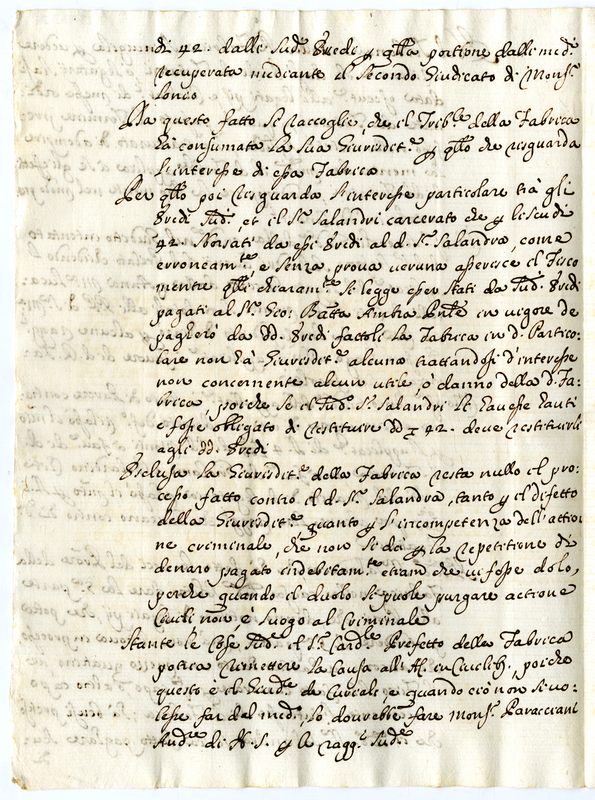 di 42. dalli Sud.i Eredi, e q̃lla portione dalle med.e
recuperata mediante il secondo Giudicato di Mons.r
Da questo fatto si raccoglie, che il Trib.le della Fabrica
hà consumata la sua Giurisdit.e p q̃llo che risguarda
l'interesse di essa Fabrica
Per q̃llo poi risguarda l'interesse particolare trà gli
Eredi Sud.i, et il S.r Salandri carcerato che p li scudi
42. sborsati da essi Eredi al d. S.r Salandra, come
erroneam.te, e senza prova veruna asserisce il Fisco
mentre q̃lli chiaram.te si legge esser stati da Sud.i Eredi
pagati al S.r Gio: Batta in vigore de
pagherò da dd. Eredi fattoli la Fabrica in d. Partico-
lare non hà Giurisdit.e alcuna trattandosi d'interesse
non concernente alcun utile, ò danno della d. Fa-
brica, poiche se el Sud. S.r Salandri li havesse hauti
e fosse obligato di restituire dd ∇ 42. deve restituirli
agli dd. Eredi
Esclusa la Giurisdit.e della Fabrica resta nullo il pro-
cesso fatto contro el d. S.r Salandra, tanto p el difetto
della Giurisdit.e quanto p l'incompetenza dell'attio-
ne criminale, che non si dà p la repetitione di
denaro pagato indebitam.te etiam che vi fosse dolo,
perche quando el duolo si puole purgare actione
Civili non è luogo al Criminale
Stante le cose Sud.e el S.r Card.le Prefetto della Fabrica
potria rimettere la Causa all'A. poiche
questo e el Giud.e de Curiali, e quando ciò non si vo-
lesse far dal med.o lo dovrebbe fare Mons.r Paracciani
Aud.re di N. S. p le ragg.i Sud.e